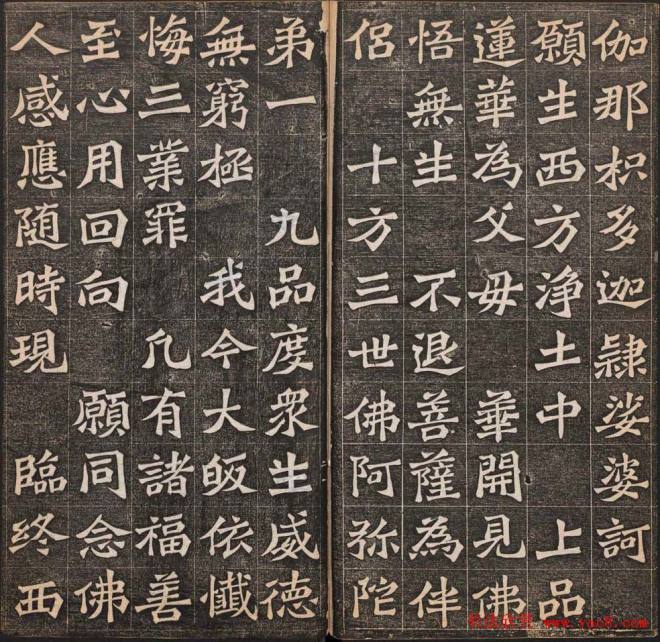 伽那枳多迦隷娑婆訶
願生西方浄土中　上品
蓮華為父母　華開見佛
悟無生　不退菩薩為伴
侶　十方三世佛阿弥陀
弟一　九品度衆生威德
無窮極　我今大皈依懺
悔三業罪　凡有諸福善
至心用回向　願同念佛
人感應随時現　臨終西
书法欣赏 www.yac8.com